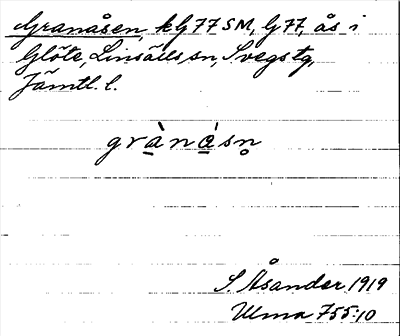 Granåsen, kG77SM, G77, ås i
Glöte, Linsälls sn, Svegs tg,
Jämtl. l.
grànásn̥
S. Åsander 1919
Ulma 755:10